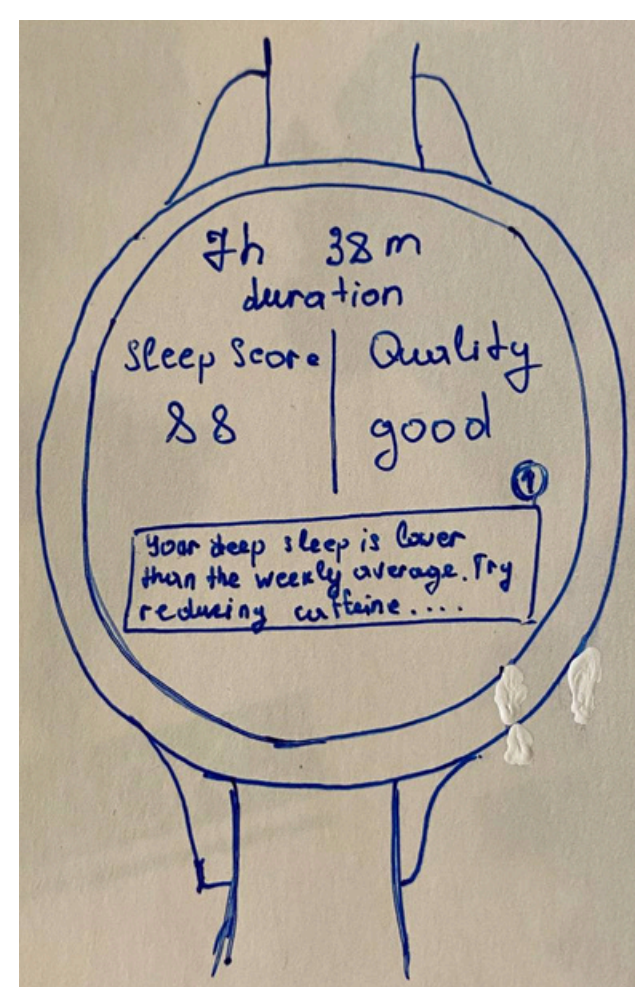 7h 38m
duration
Sleep Score | Quality
88 | good
1
Your deep sleep is lower
than the weekly average. Try
reducing caffeine....